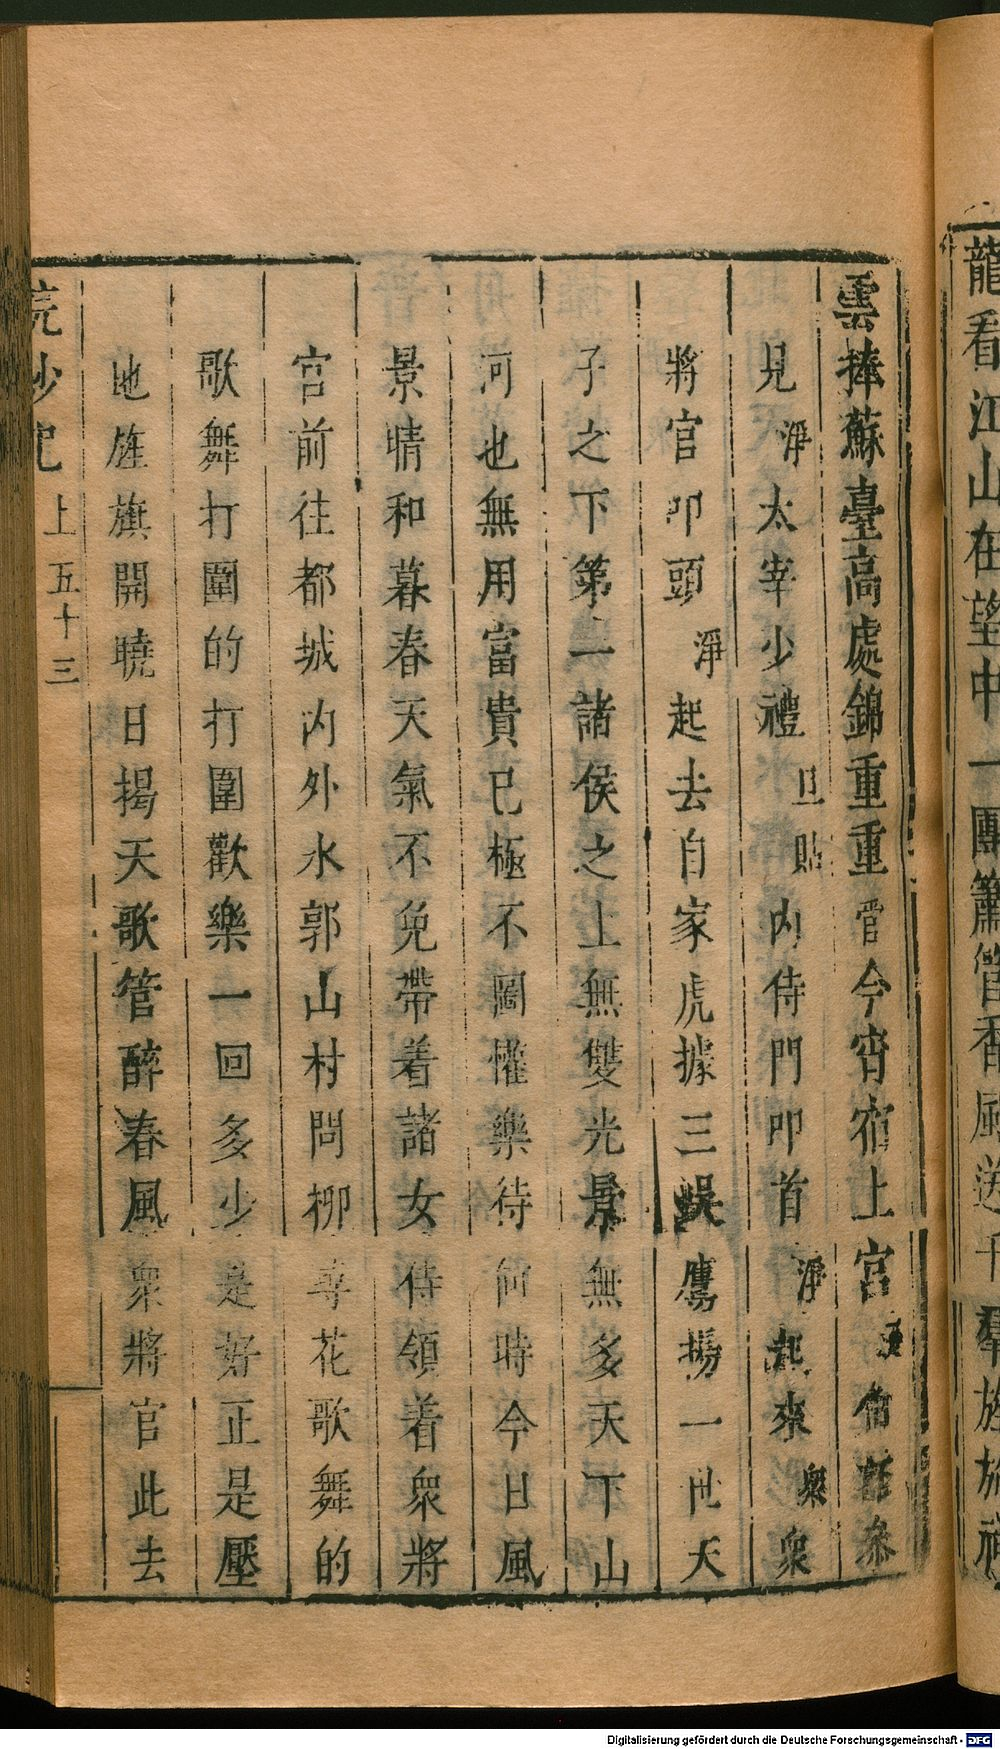 龍看江山在望中一團簫管香風送千羣旌旆
雲捧蘇臺高處錦重重管今宵宿上宮
見淨太宰少禮旦貼內侍門叩首淨起來衆衆
將官叩頭淨起去自家虎據三吳鷹揚一世天
子之下第二諸侯之上無雙光景無多天下山
河也無用富貴已極不圖懽樂待何時今日風
景晴和暮春天氣不免帶着諸女侍領着衆將
官前往都城內外水郭山村問柳尋花歌舞的
歌舞打圍的打圍歡樂一回多少是好正是壓
地旌旗開曉日揭天歌管醉春風衆將官此去
浣紗記 上 五十三
Digitalisierung gefördert durch die Deutsche Forschungsgemeinschaft - DFG